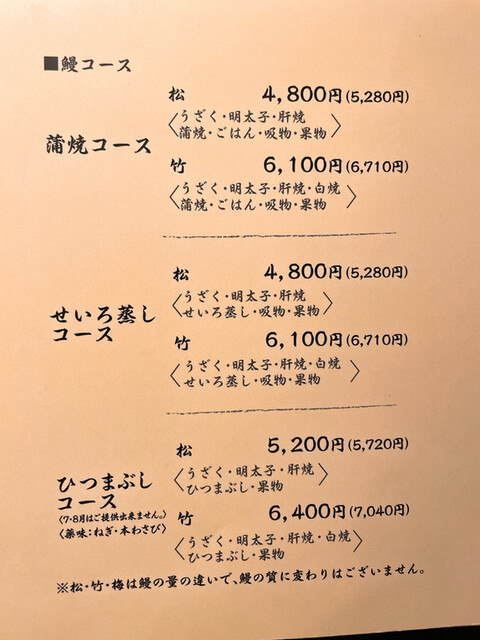 ■鰻コース
蒲焼コース
松 4,800円(5,280円)
〈うざく・明太子・肝焼
蒲焼・ごはん・吸物・果物〉
竹 6,100円(6,710円)
〈うざく・明太子・肝焼・白焼
蒲焼・ごはん・吸物・果物〉
せいろ蒸し
コース
松 4,800円(5,280円)
〈うざく・明太子・肝焼
せいろ蒸し・吸物・果物〉
竹 6,100円(6,710円)
〈うざく・明太子・肝焼・白焼
せいろ蒸し・吸物・果物〉
ひつまぶし
コース
〈7・8月はご提供出来ません。〉
〈薬味：ねぎ・本わさび〉
松 5,200円(5,720円)
〈うざく・明太子・肝焼
ひつまぶし・果物〉
竹 6,400円(7,040円)
〈うざく・明太子・肝焼・白焼
ひつまぶし・果物〉
※松・竹・梅は鰻の量の違いで、鰻の質に変わりはございません。